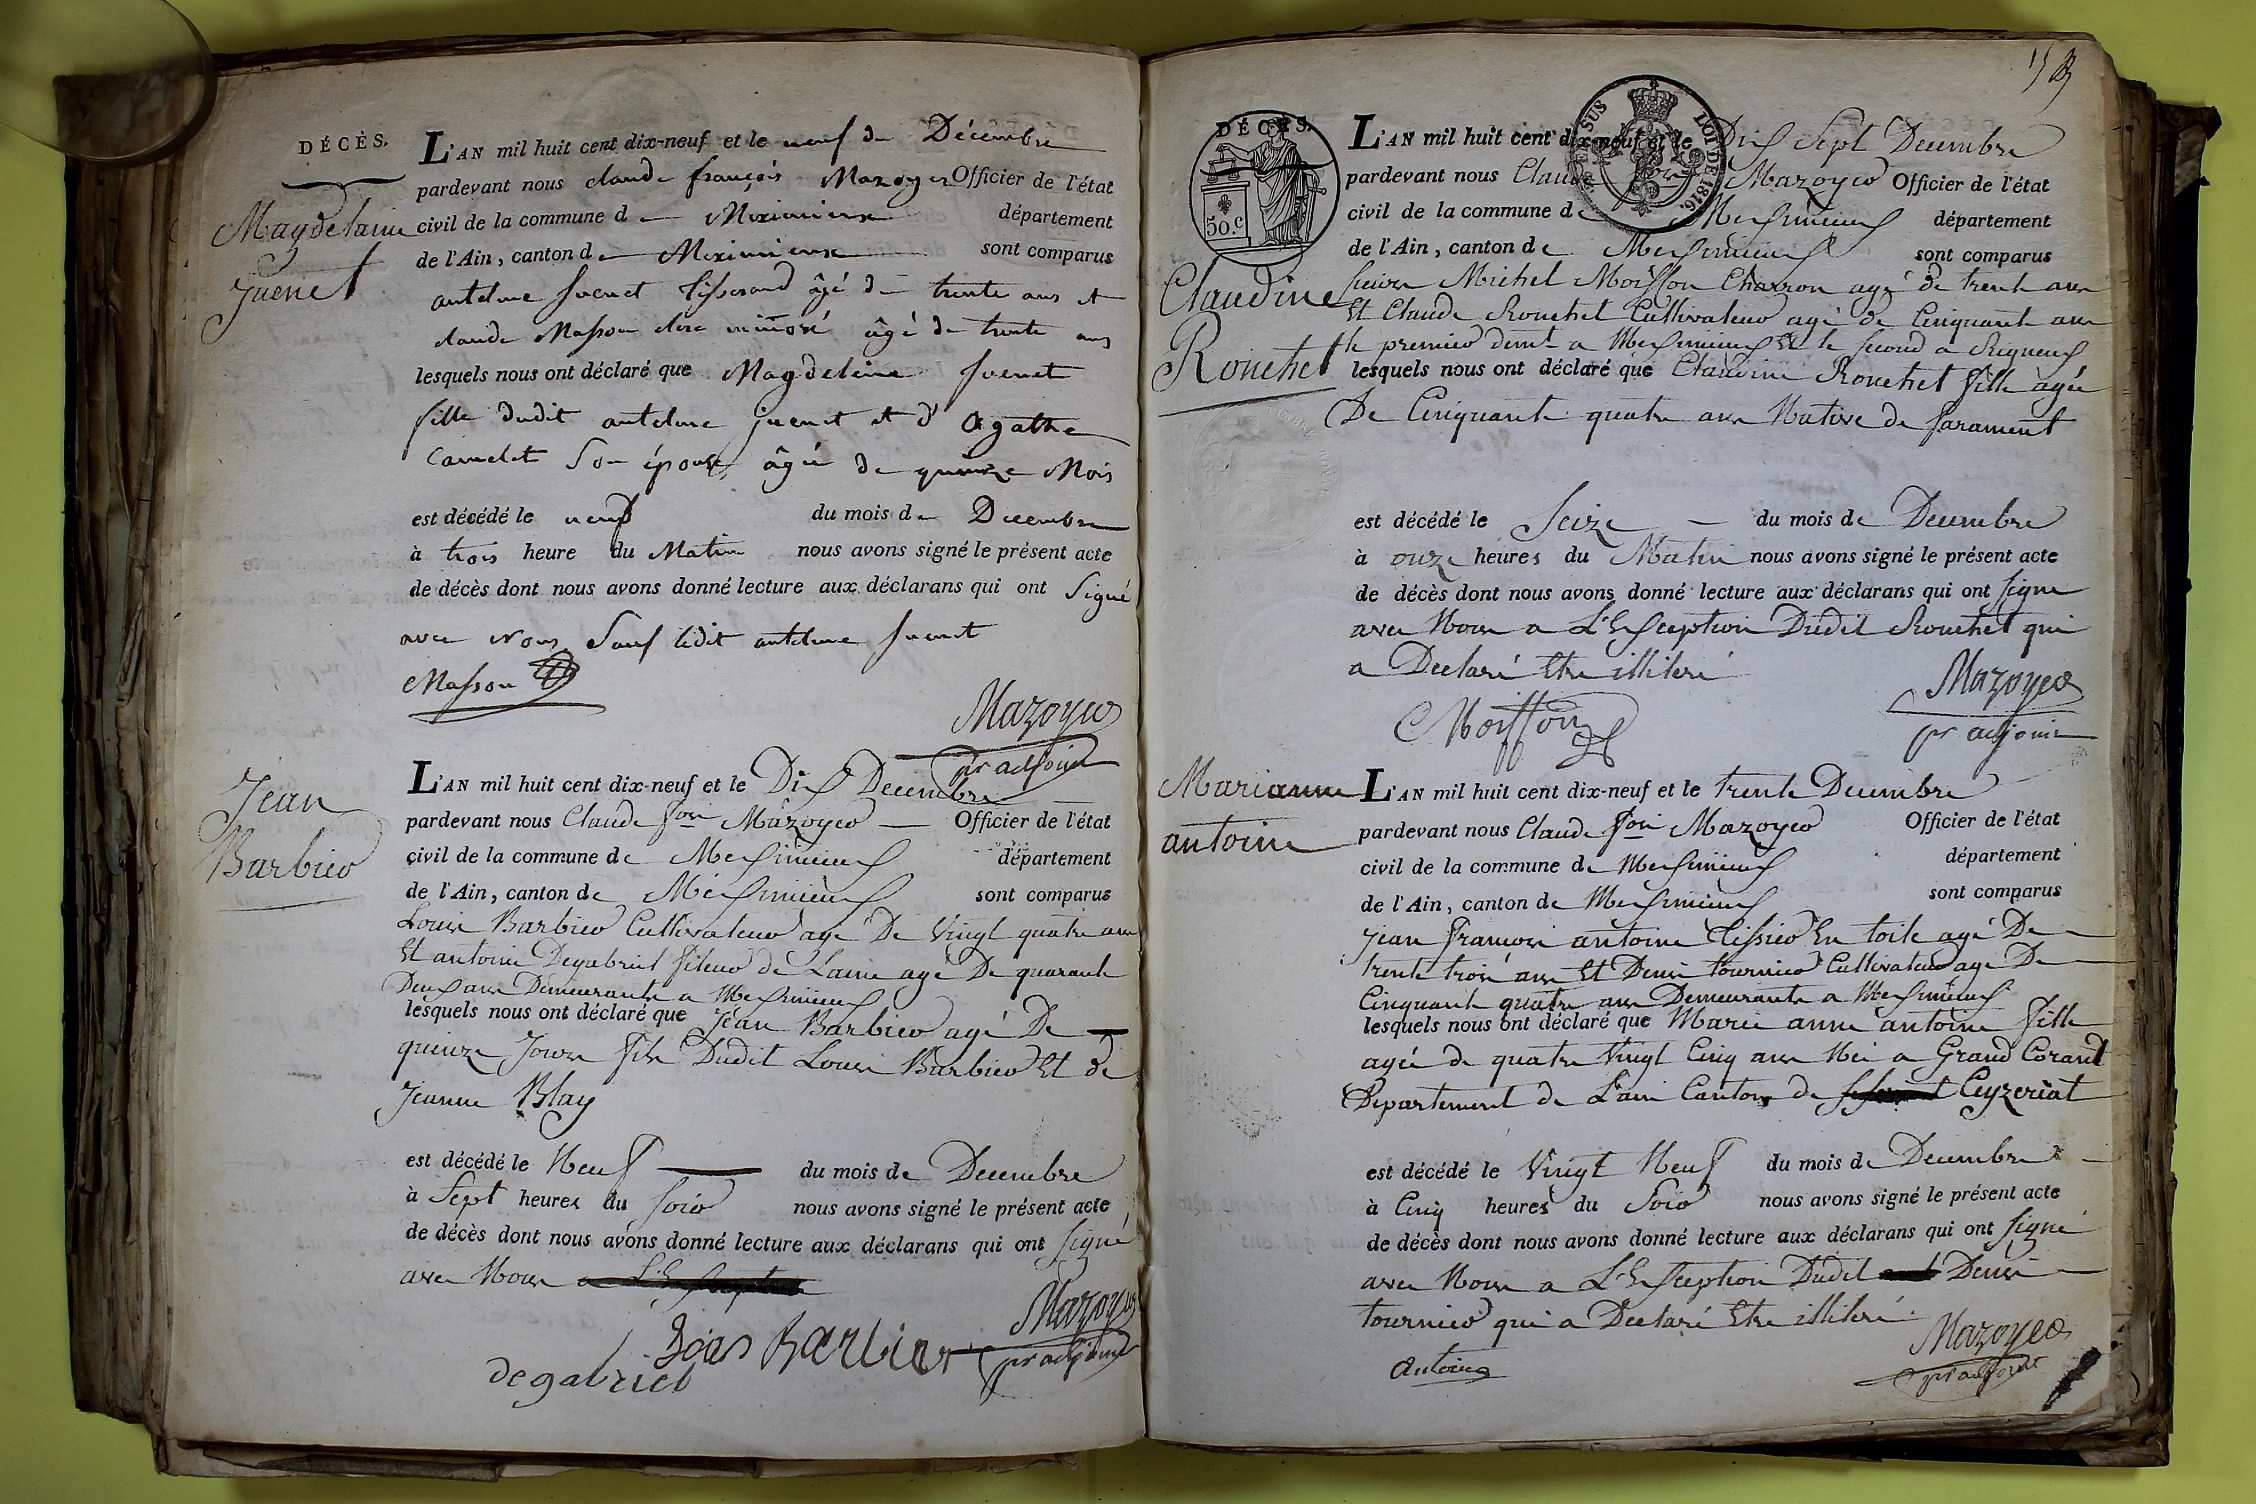 DÉCÈS.
Magdelaine
Juenet
L'AN mil huit cent dix-neuf et le neuf de Décembre
pardevant nous claude françois Mazoyer Officier de l'état
civil de la commune de Meximieux département
de l'Ain, canton de Meximieux sont comparus
antelme Juenet tisserand âgé de trente ans et
claude Masson clerc minoré âgé de trente ans
lesquels nous ont déclaré que Magdeleine Juenet
fille dudit antelme juenet et d'agathe
Camelet Son épouse, âgée de quinze Mois
est décédé le neuf du mois de Decembre
à trois heure du Matin nous avons signé le présent acte
de décès dont nous avons donné lecture aux déclarans qui ont Signé
avec Nous Sauf ledit antelme Juenet
Masson
Mazoyer
pr adjoint
Jean
Barbier
L'AN mil huit cent dix-neuf et le Dix Decembre
pardevant nous Claude fois Mazoyer Officier de l'état
civil de la commune de Meximieux département
de l'Ain, canton de Meximieux sont comparus
Louis Barbier Cultivateur agé De Vingt quatre ans
Et antoine Degabriel fileur de Laine agé De quarante
Deux ans Demeurants a Meximieux
lesquels nous ont déclaré que Jean Barbier agé De
quinze Jours fils Dudit Louis Barbier Et de
Jeanne Blay
est décédé le Neuf du mois de Decembre
à Sept heures du soir nous avons signé le présent acte
de décès dont nous avons donné lecture aux déclarans qui ont signé
avec Nous a L'Exception
Mazoyer
pr adjoint
Barbier
degabriel
DÉCÈS.
50.c
SUS
LOI DE 1816.
Claudine
Rouchet
L'AN mil huit cent dix-neuf et le Dix Sept Decembre
pardevant nous Claude fois Mazoyer Officier de l'état
civil de la commune de Meximieux département
de l'Ain, canton de Meximieux sont comparus
sieurs Michel Moisson Charron agé de trente ans
Et Claude Rouchet Cultivateur agé de Cinquante ans
le premier demt a Meximieux Et le second a Rigneux
lesquels nous ont déclaré que Claudine Rouchet fille agée
De Cinquante quatre ans Native de farament
est décédé le Seize du mois de Decembre
à onze heures du Matin nous avons signé le présent acte
de décès dont nous avons donné lecture aux déclarans qui ont signé
avec Nous a L'Exception Dudit Rouchet qui
a Declaré Etre illiteré
Moisson
Mazoyer
pr adjoint
Marianne
antoine
L'AN mil huit cent dix-neuf et le trente Decembre
pardevant nous Claude fois Mazoyer Officier de l'état
civil de la commune de Meximieux département
de l'Ain, canton de Meximieux sont comparus
Jean François antoine tissier En toile agé De
trente trois ans Et Denis tournier Cultivateur agé De
Cinquante quatre ans Demeurants a Meximieux
lesquels nous ont déclaré que Marie anne antoine fille
agée de quatre Vingt Cinq ans Née a Grand Corant
Departement de L'ain Canton de Ceyzeriat
est décédé le Vingt Neuf du mois de Decembre
à Cinq heures du Soir nous avons signé le présent acte
de décès dont nous avons donné lecture aux déclarans qui ont signé
avec Nous a L'Exception Dudit Denis
tournier qui a Declaré Etre illiteré
Antoine
Mazoyer
pr adjoint